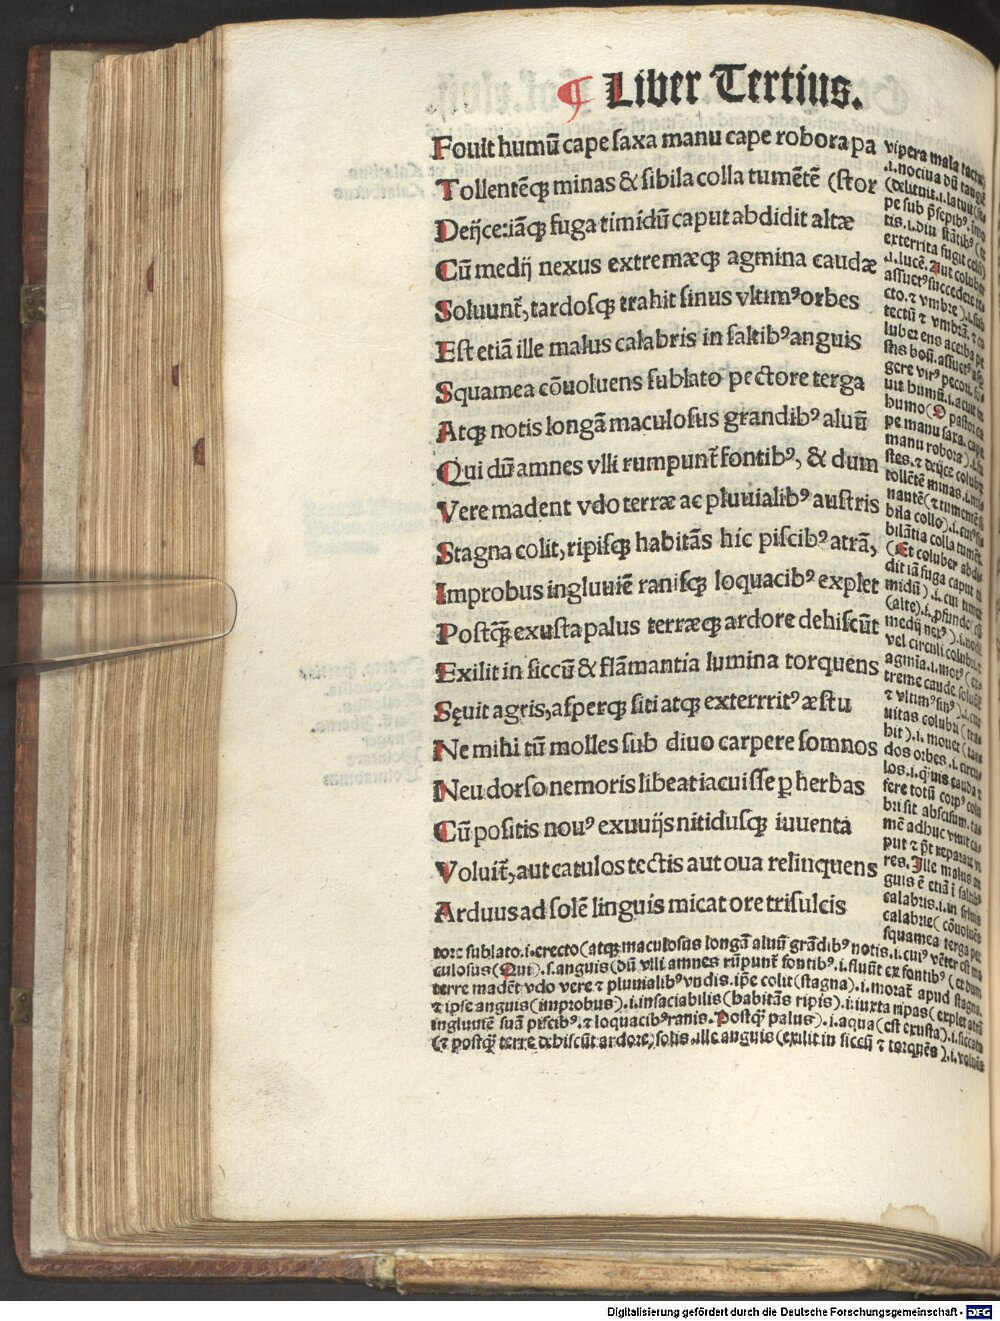 ¶ Liber Tertius.
Fouit humū cape saxa manu cape robora pa
Tollentēcꝫ minas & sibila colla tumētē (stor
Deijce:iācꝫ fuga timidū caput abdidit altæ
Cū medij nexus extremæcꝫ agmina caudæ
Soluunt᷑, tardoscꝫ trahit sinus vltimꝰ orbes
Est etiā ille malus calabris in saltibꝰ anguis
Squamea cōuoluens sublato pectore terga
Atcꝫ notis longā maculosus grandibꝰ aluū
Qui dū amnes vlli rumpunt᷑ fontibꝰ, & dum
Vere madent vdo terræ ac pluuialibꝰ austris
Stagna colit, ripiscꝫ habitās hic piscibꝰ atrā,
Improbus ingluuiē raniscꝫ loquacibꝰ explet
Postcꝫ̄ exusta palus terræcꝫ ardore dehiscūt
Exilit in siccū & flāmantia lumina torquens
Sęuit agris, aspercꝫ siti atcꝫ exterrritꝰ æstu
Ne mihi tū molles sub diuo carpere somnos
Neu dorso nemoris libeat iacuisse ꝑ herbas
Cū positis nouꝰ exuuijs nitiduscꝫ iuuenta
Voluit᷑, aut catulos tectis aut oua relinquens
Arduus ad solē linguis micat ore trisulcis
vipera mala tactu)
.i. nociua dū tangit
exterrita fugit celū)
.i. lucē. Aut coluber
assuetꝰ succedere te
cto. ⁊ vmbre).i. sub
tectū ⁊ vmbrā. ⁊ co
luber ens acerba pe
gere virꝰ pecori. fo
uit humū.i.
humo(O pastor ca
pe manu saxa. cape
manu robora).i.
stes. ⁊ deijce colubꝝ
tollētē minas.
bila collo).i.
bilātia colla tumēt.
(Et coluber abdi
dit iā fuga caput ti
midū).i. cui timor
(alte).i. ꝓfunde (cū
medij nexꝰ).i. nodi
vel circuli colubri. ⁊
agmīa.i. motꝰ (ex
treme caude soluūt᷑
⁊ vltimꝰ sinꝰ).i. cur
uitas colubri (tra
bit).i. mouet (tar
dos orbes.i. circu
los.i.
fere totū corpꝰ colu
bri sit abscisum. ta
mē adhuc viuit ca
put ⁊ pōt reparare vi
res. Ille malus an
guis ē etiā ī saltibꝰ
calabris.i. in siluis
calabrie( cōuoluēs
squamea terga pec
tore sublato.i. erecto(atqꝫ maculosus longā aluū grādibꝰ notis.i. cuiꝰ vēter est ma
culosus(Qui).s. anguis(dū vlli amnes rūpunt᷑ fontibꝰ.i. fluūt ex fontibꝰ( et dum
terre madēt vdo vere ⁊ pluuialibꝰ vndis. ip̄e colit(stagna).i. morat᷑ apud stagna.
⁊ ipse anguis(improbus).i. insaciabilis(habitās ripis).i. iuxta ripas( explet atrā
ingluuiē suā piscibꝰ. ⁊ loquacibꝰ ranis. Postqꝫ̄ palus).i. aqua(est exusta).i. siccata
(⁊ postqꝫ̄ terre dehiscūt ardore) solis. ille anguis(exilit in siccū ⁊ torquēs ).i. voluēs
Digitalisierung gefördert durch die Deutsche Forschungsgemeinschaft - DFG